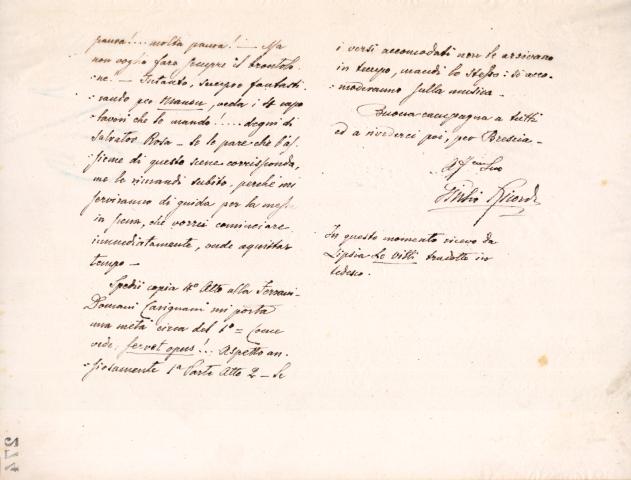 paura!... molta paura! — Ma
non voglio fare sempre il brontolo
ne. — Intanto, sempre fantasti
cando per Manon, veda i 4 capo
lavori che le mando!.... degni di
Salvator Rosa — Se le pare che l'as
sieme di questo scene corrisponda,
me le rimandi subito, perché mi
serviranno di guida per la messa
in scena, che vorrei cominciare
immediatamente, onde acquistar
tempo —
Spedii copia 4º Atto alla Ferrani —
Domani Carignani mi porta
una metà circa del 1º = Come
vede: fervet opus!... Aspetto an
siosamente 1ª Parte Atto 2 — Se
i versi accomodati non le arrivano
in tempo, mandi lo stesso: si acco
moderanno sulla musica —
Buona campagna a tutti
ed a rivederci poi, per Brescia —
Suo
Giulio Ricordi
In questo momento ricevo da
Lipsia Le Villi tradotte in
tedesco.
274